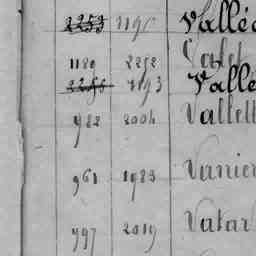 2253 2195 Vallé
1189 2252 Valet
2255 2193 Vallé
982 2004 Vallett
961 1983 Vanier
997 2019 Vatar